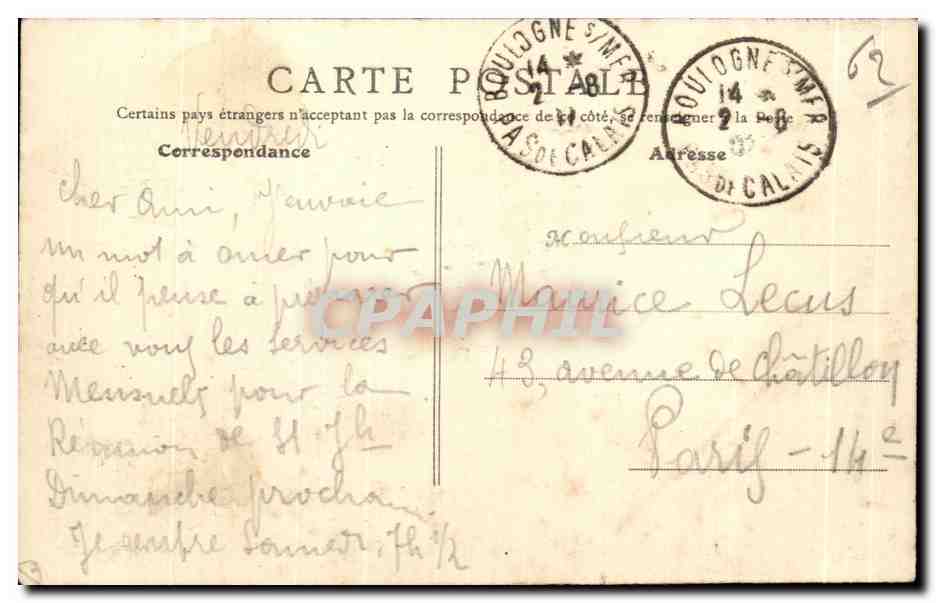 CARTE POSTALE
Certains pays étrangers n'acceptant pas la correspondance de ce côté, se renseigner à la Poste
Vendredi
Correspondance
Cher Ami, J'envoie
un mot à amer pour
qu'il pense à préparer
avec vous les services
Mensuels pour la
Réunion de St Jh
Dimanche prochain.
Je rentre Samedi, 7h 1/2
Adresse
Monsieur
Maurice Lecus
43, avenue de Châtillon
Paris - 14e
BOULOGNE S/MER
14 *
2 - 8
11
PAS DE CALAIS
BOULOGNE S/MER
14 *
2 - 8
PAS DE CALAIS
62
CPAPHIL